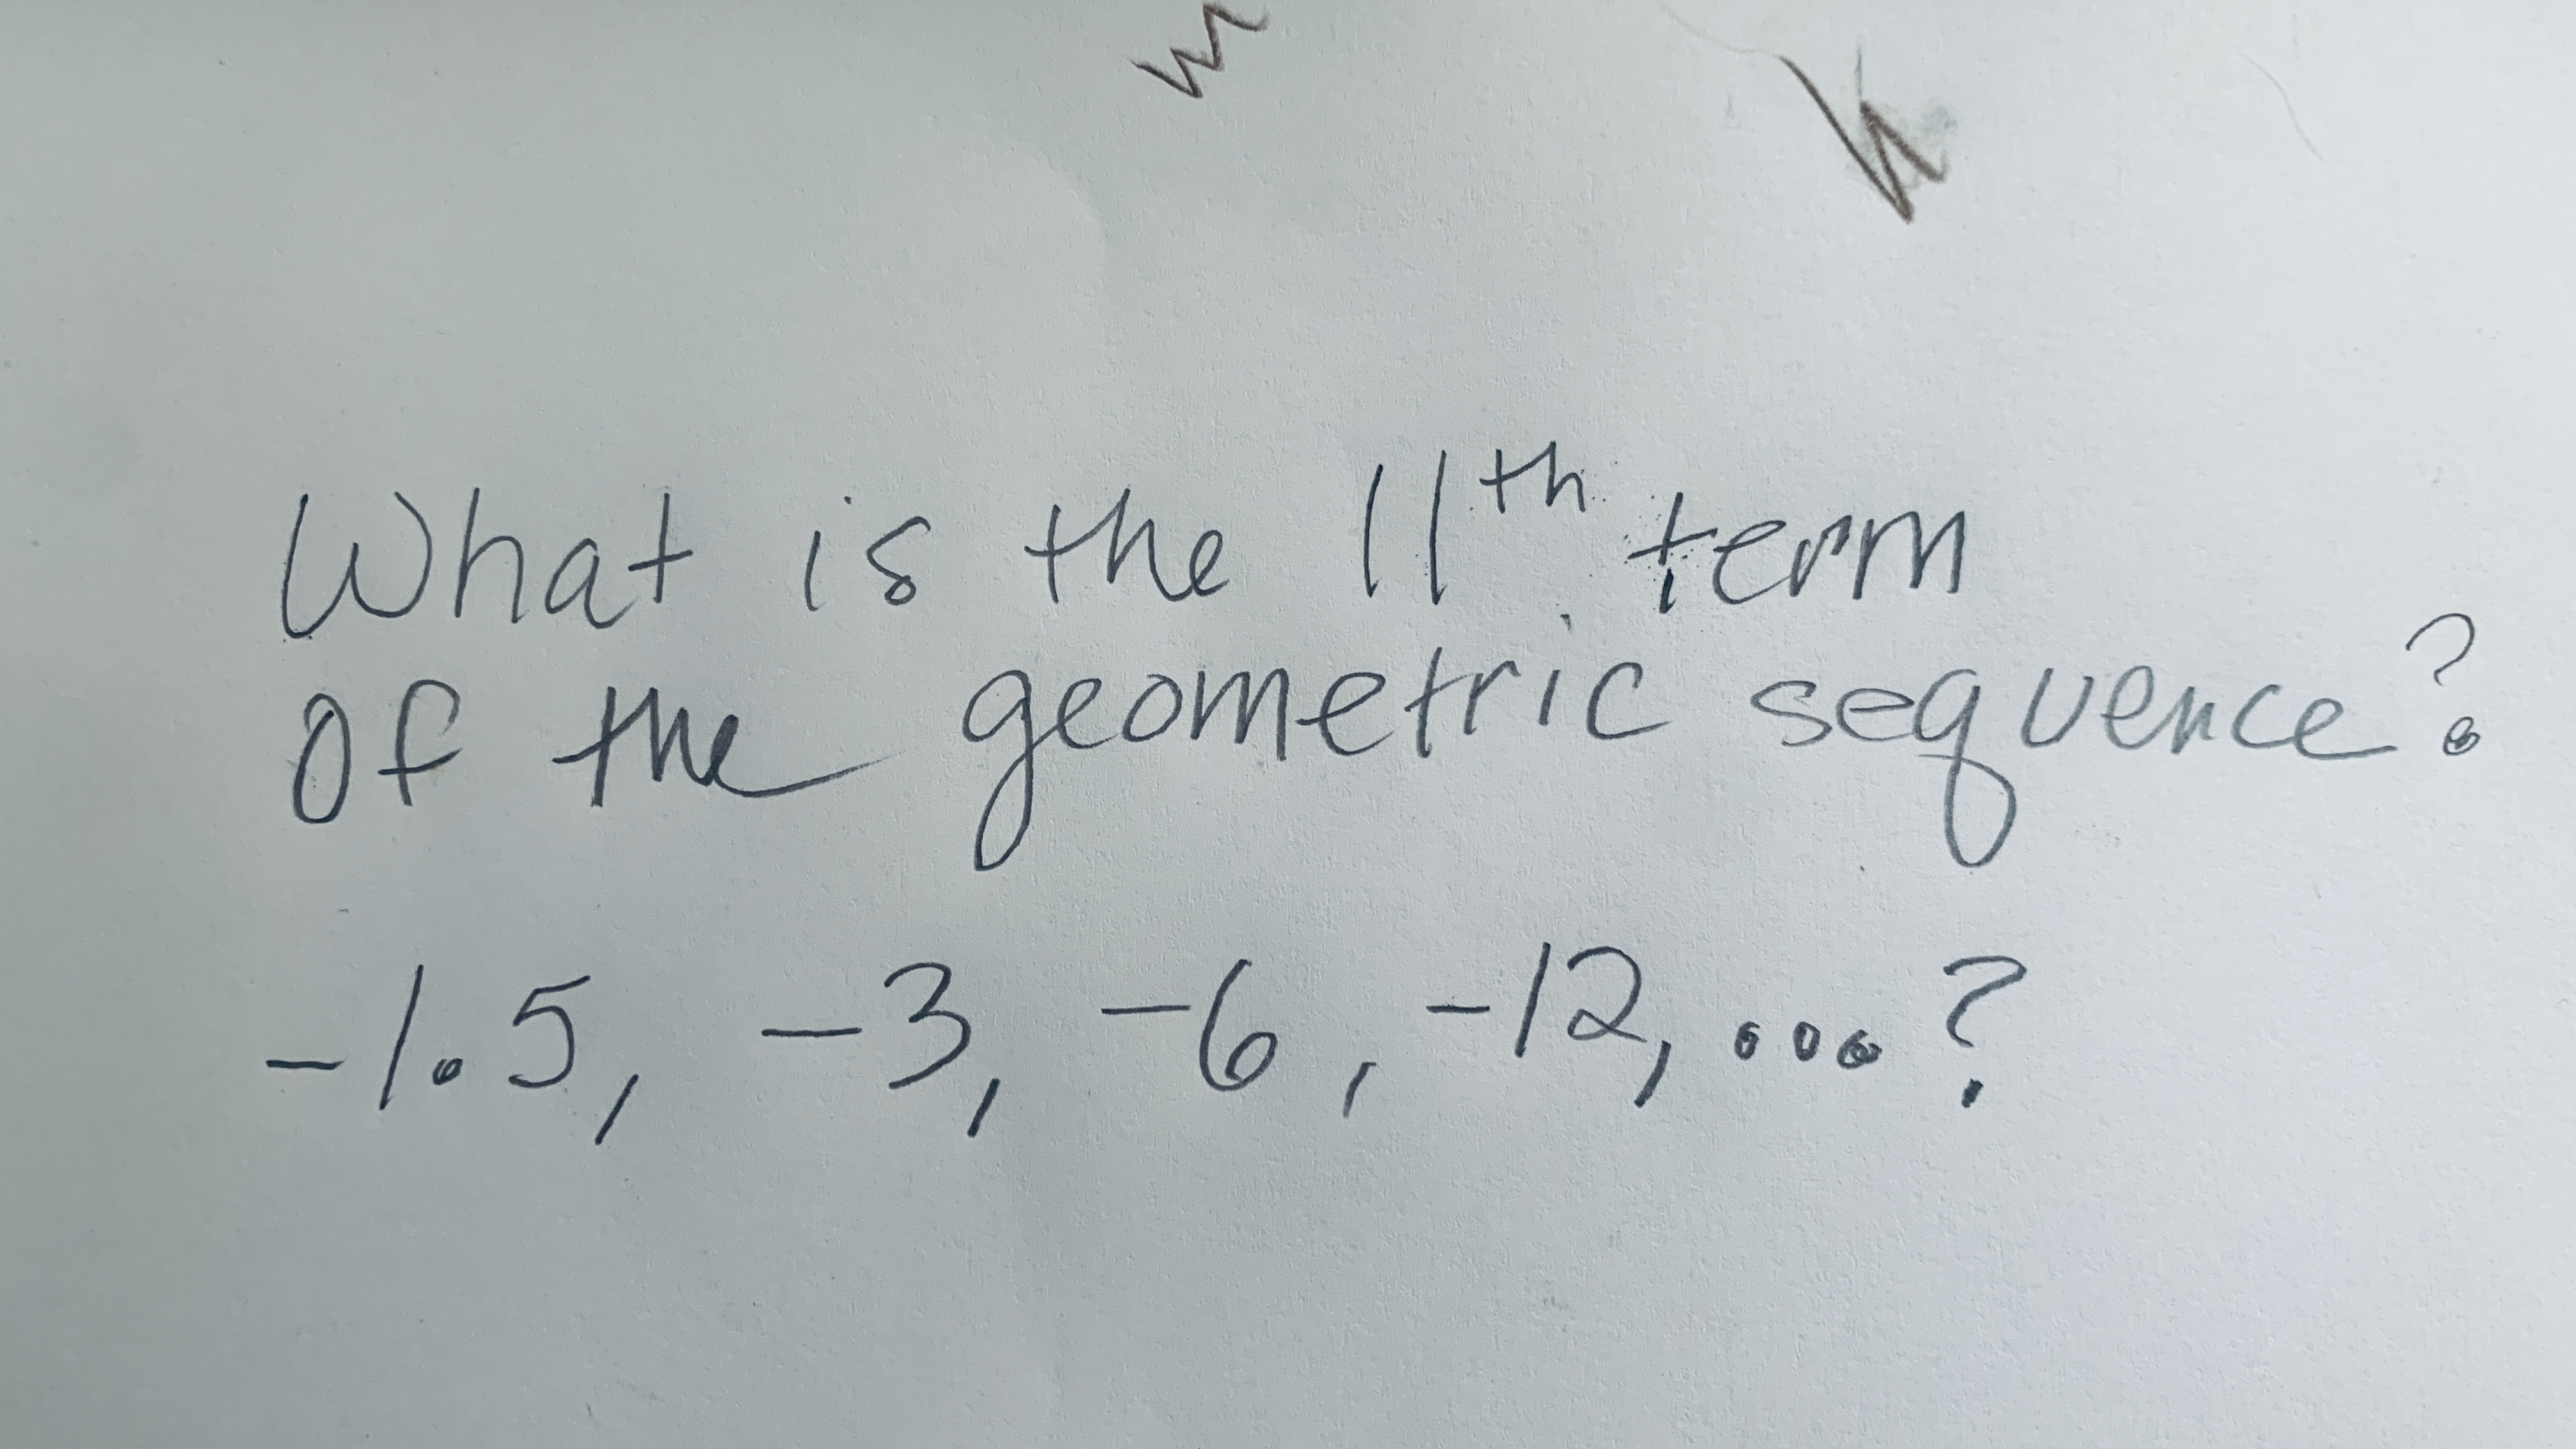 What is the 11th term
of the geometric sequence?
-1.5, -3, -6, -12, ...?